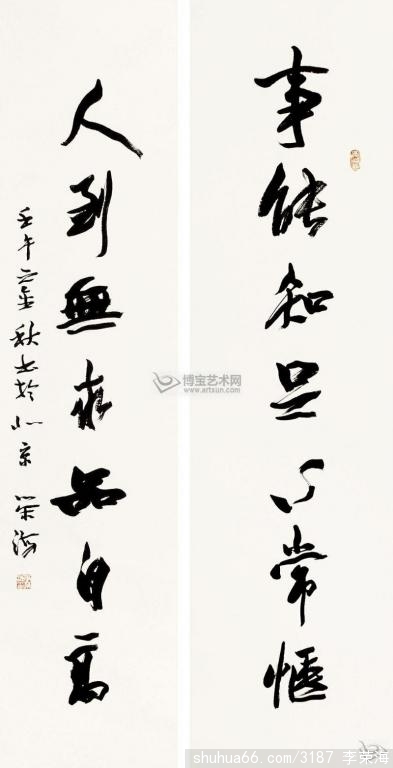 事能知足心常惬
人到無求品自高
壬午之金秋书於北京 荣海
博宝艺术网
www.artsun.com
shuhua66.com/3187 李荣海